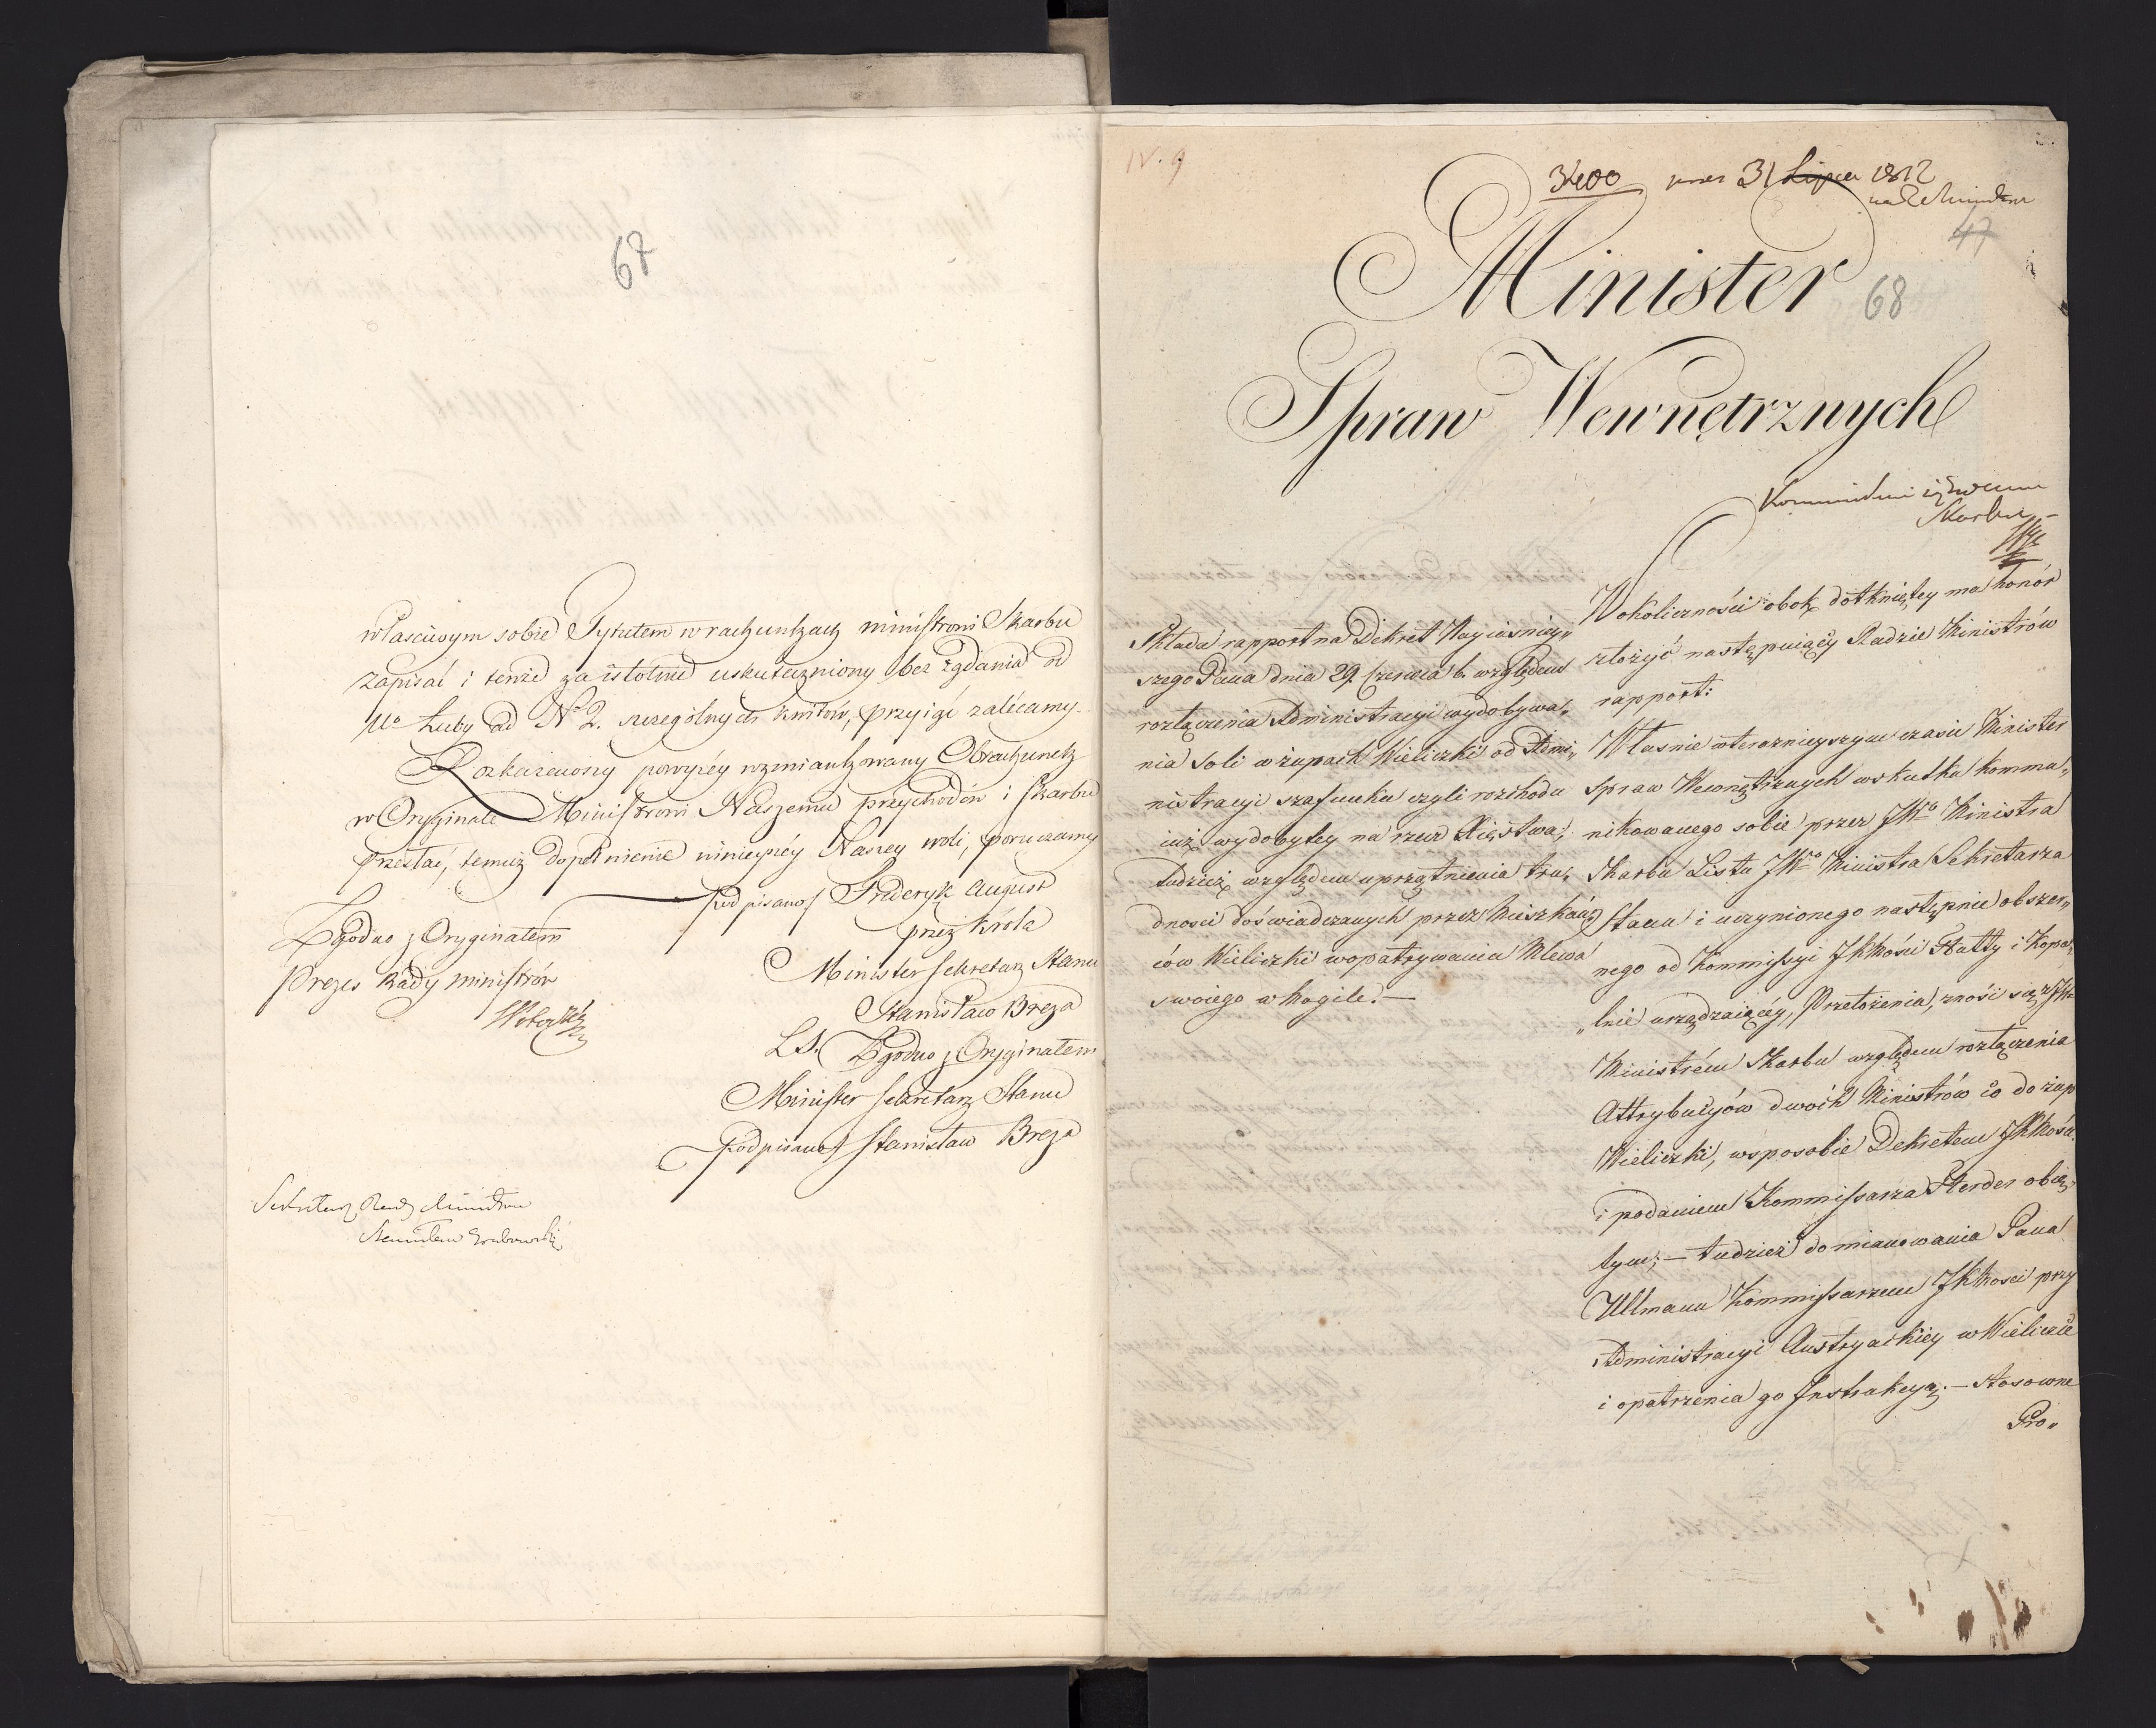 67
właściwym sobie Tytułem w rachunkach ministrowi Skarbu
zapisać i tenże za istotnie uskuteczniony bez żądania od
Luby ad No 2. szczególnych kwitów, przyiąć zalécamy.
Rozkazawszy powyżéy wzmiankowany Obrachunek
w Oryginale Ministrowi Naszemu przychodów i skarbu
przesłać, temuż dopełnienie ninieyszéy Naszey woli, poruczamy
podpisano/ Frideryk August
przez Króla
Minister Sekretarz Stanu
Stanisław Breza
LS. Zgodno z Oryginałem
Minister Sekretarz Stanu
/podpisano/ Stanisław Breza
Zgodno z Oryginałem
Prezes Rady ministrów
Sekretarz Rady Ministrów
Stanisław Grabowski
IV. 9
3400 31 Lipca 1812
47
Minister 68
Spraw Wewnętrznych
Skarbu
Składa rapport na Dekret Nayiaśniey„
szego Pana dnia 29. Czerwca b. względem
rozłączenia Administracyi wydobywa„
nia Soli w żupach Wieliczki od Admi„
nistracyi szafunku czyli rozchodu
iuż wydobytey na rzecz Xięstwa;
tudzież względem uprzątnienia tru„
dnosci doświadczanych przez Mieszkań„
ców Wieliczki w opatrywaniu Mlewa
swoiego w Mogile.—
W okoliczności obok dotkniętey ma honór
złożyć następuiący Radzie Ministrów
rapport:
Własnie w teraznieyszym czasie Minister
Spraw Wewnętrznych w skutku kommu„
nikowanego sobie przez JWo Ministra
Skarbu Listu JWo Ministra Sekretarza
Stanu i uczynionego następnie obszer„
nego od Kommissyi JKMości Statty i Kopal„
„lnie urządzaiącéy, Przełożenia, znosi się z JW
Ministrem Skarbu względem rozłączenia
Attrybucyów dwóch Ministrów co do żup
Wieliczki, w sposobie Dekretem JKMości
i podaniem Kommissarza Herder obię„
tym; — tudzież do mianowania Pana
Ullmann Kommissarzem JKMosci przy
Administracyi Austryackiéy w Wieliczce
i opatrzenia go Instrukcyą; — stosowne
Pro„